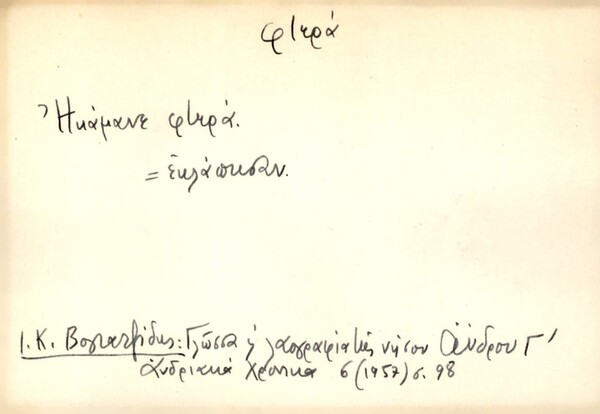 φτερά
Ἠκάμανε φτερά.
= ἐκλάπησαν.
Ι. Κ. Βογιατζίδης: Γλῶσσα ἡ λαογραφία τῆς νήσου Ἄνδρου Γ'
Ἀνδριακά Χρονικα 6 (1957) σ. 98